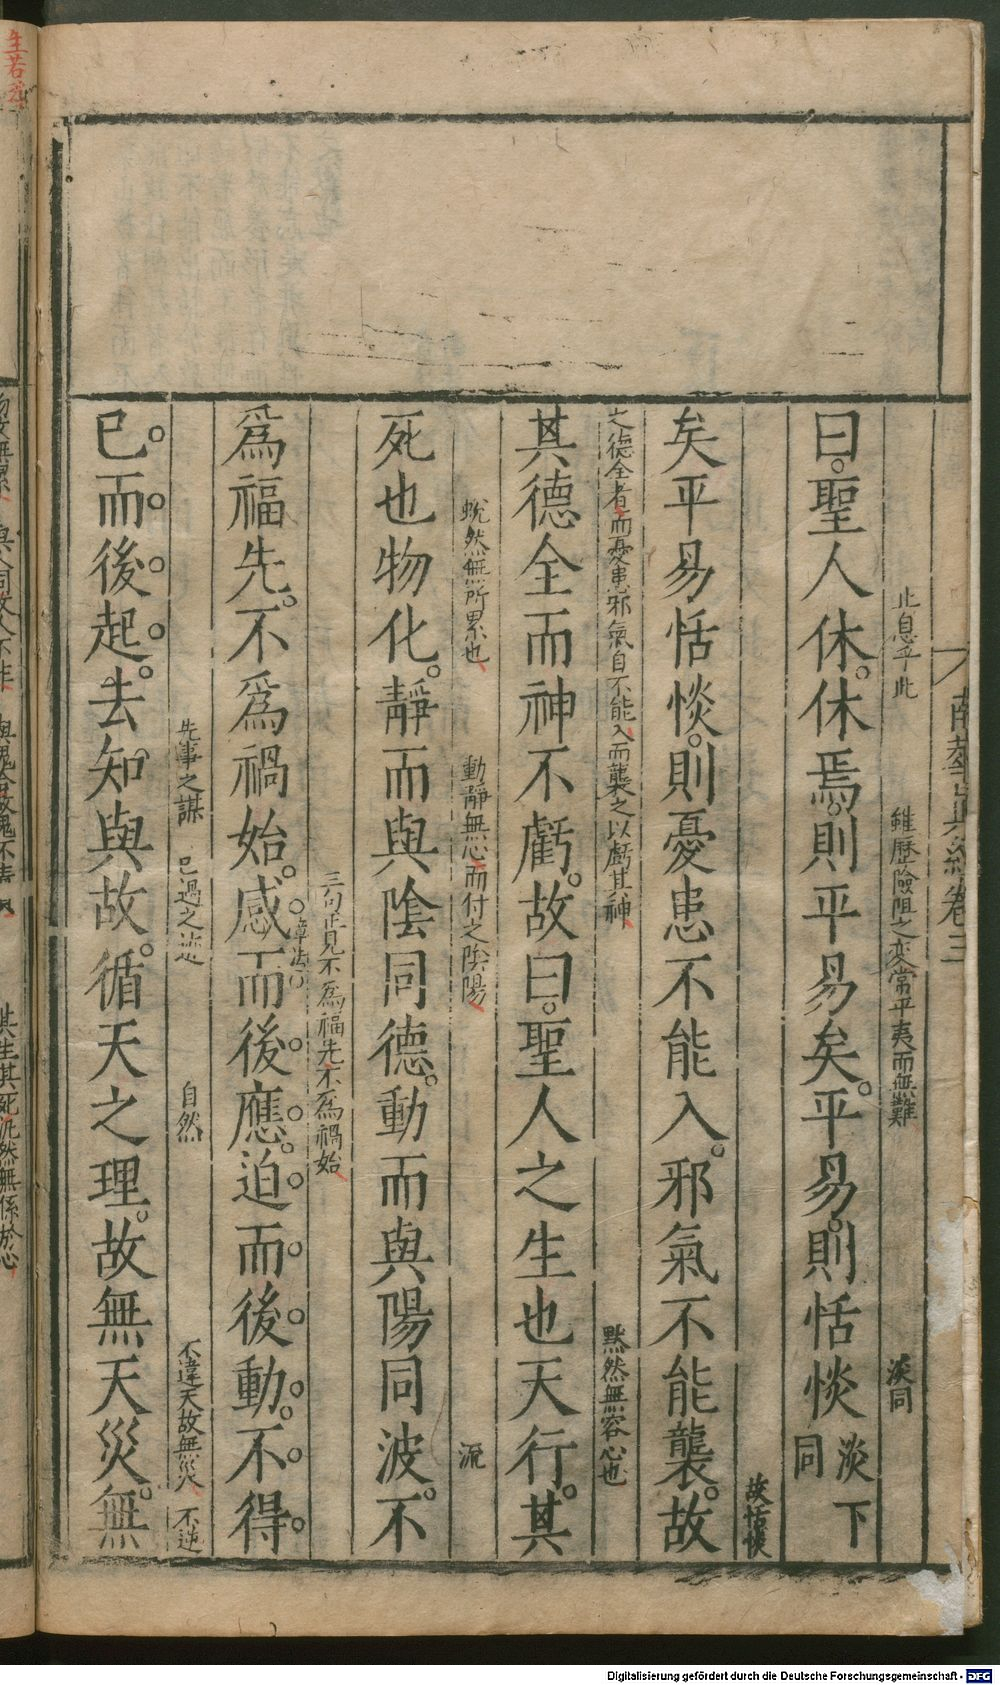 南華真經卷三
止息乎此　雖歷險阻之変常平夷而無難　淡同
曰聖人休休焉則平易矣平易則恬惔淡下同
故恬惔
矣平易恬惔則憂患不能入邪氣不能襲故
之德全者而憂患邪氣自不能入而襲之以虧其神　黙然無容心也
其德全而神不虧故曰聖人之生也天行其
蛻然無所累也　動靜無心而付之陰陽　流
死也物化靜而與陰同德動而與陽同波不
三句正見不為福先不為禍始
為福先不為禍始感而後應迫而後動不得
章法
先事之謀　已過之迹　自然　不違天故無災　不逆
已而後起去知與故循天之理故無天災無
物故無累　與人同故人不非　與鬼合故鬼不責　其生其死汎然無係於心
生若浮
Digitalisierung gefördert durch die Deutsche Forschungsgemeinschaft - DFG